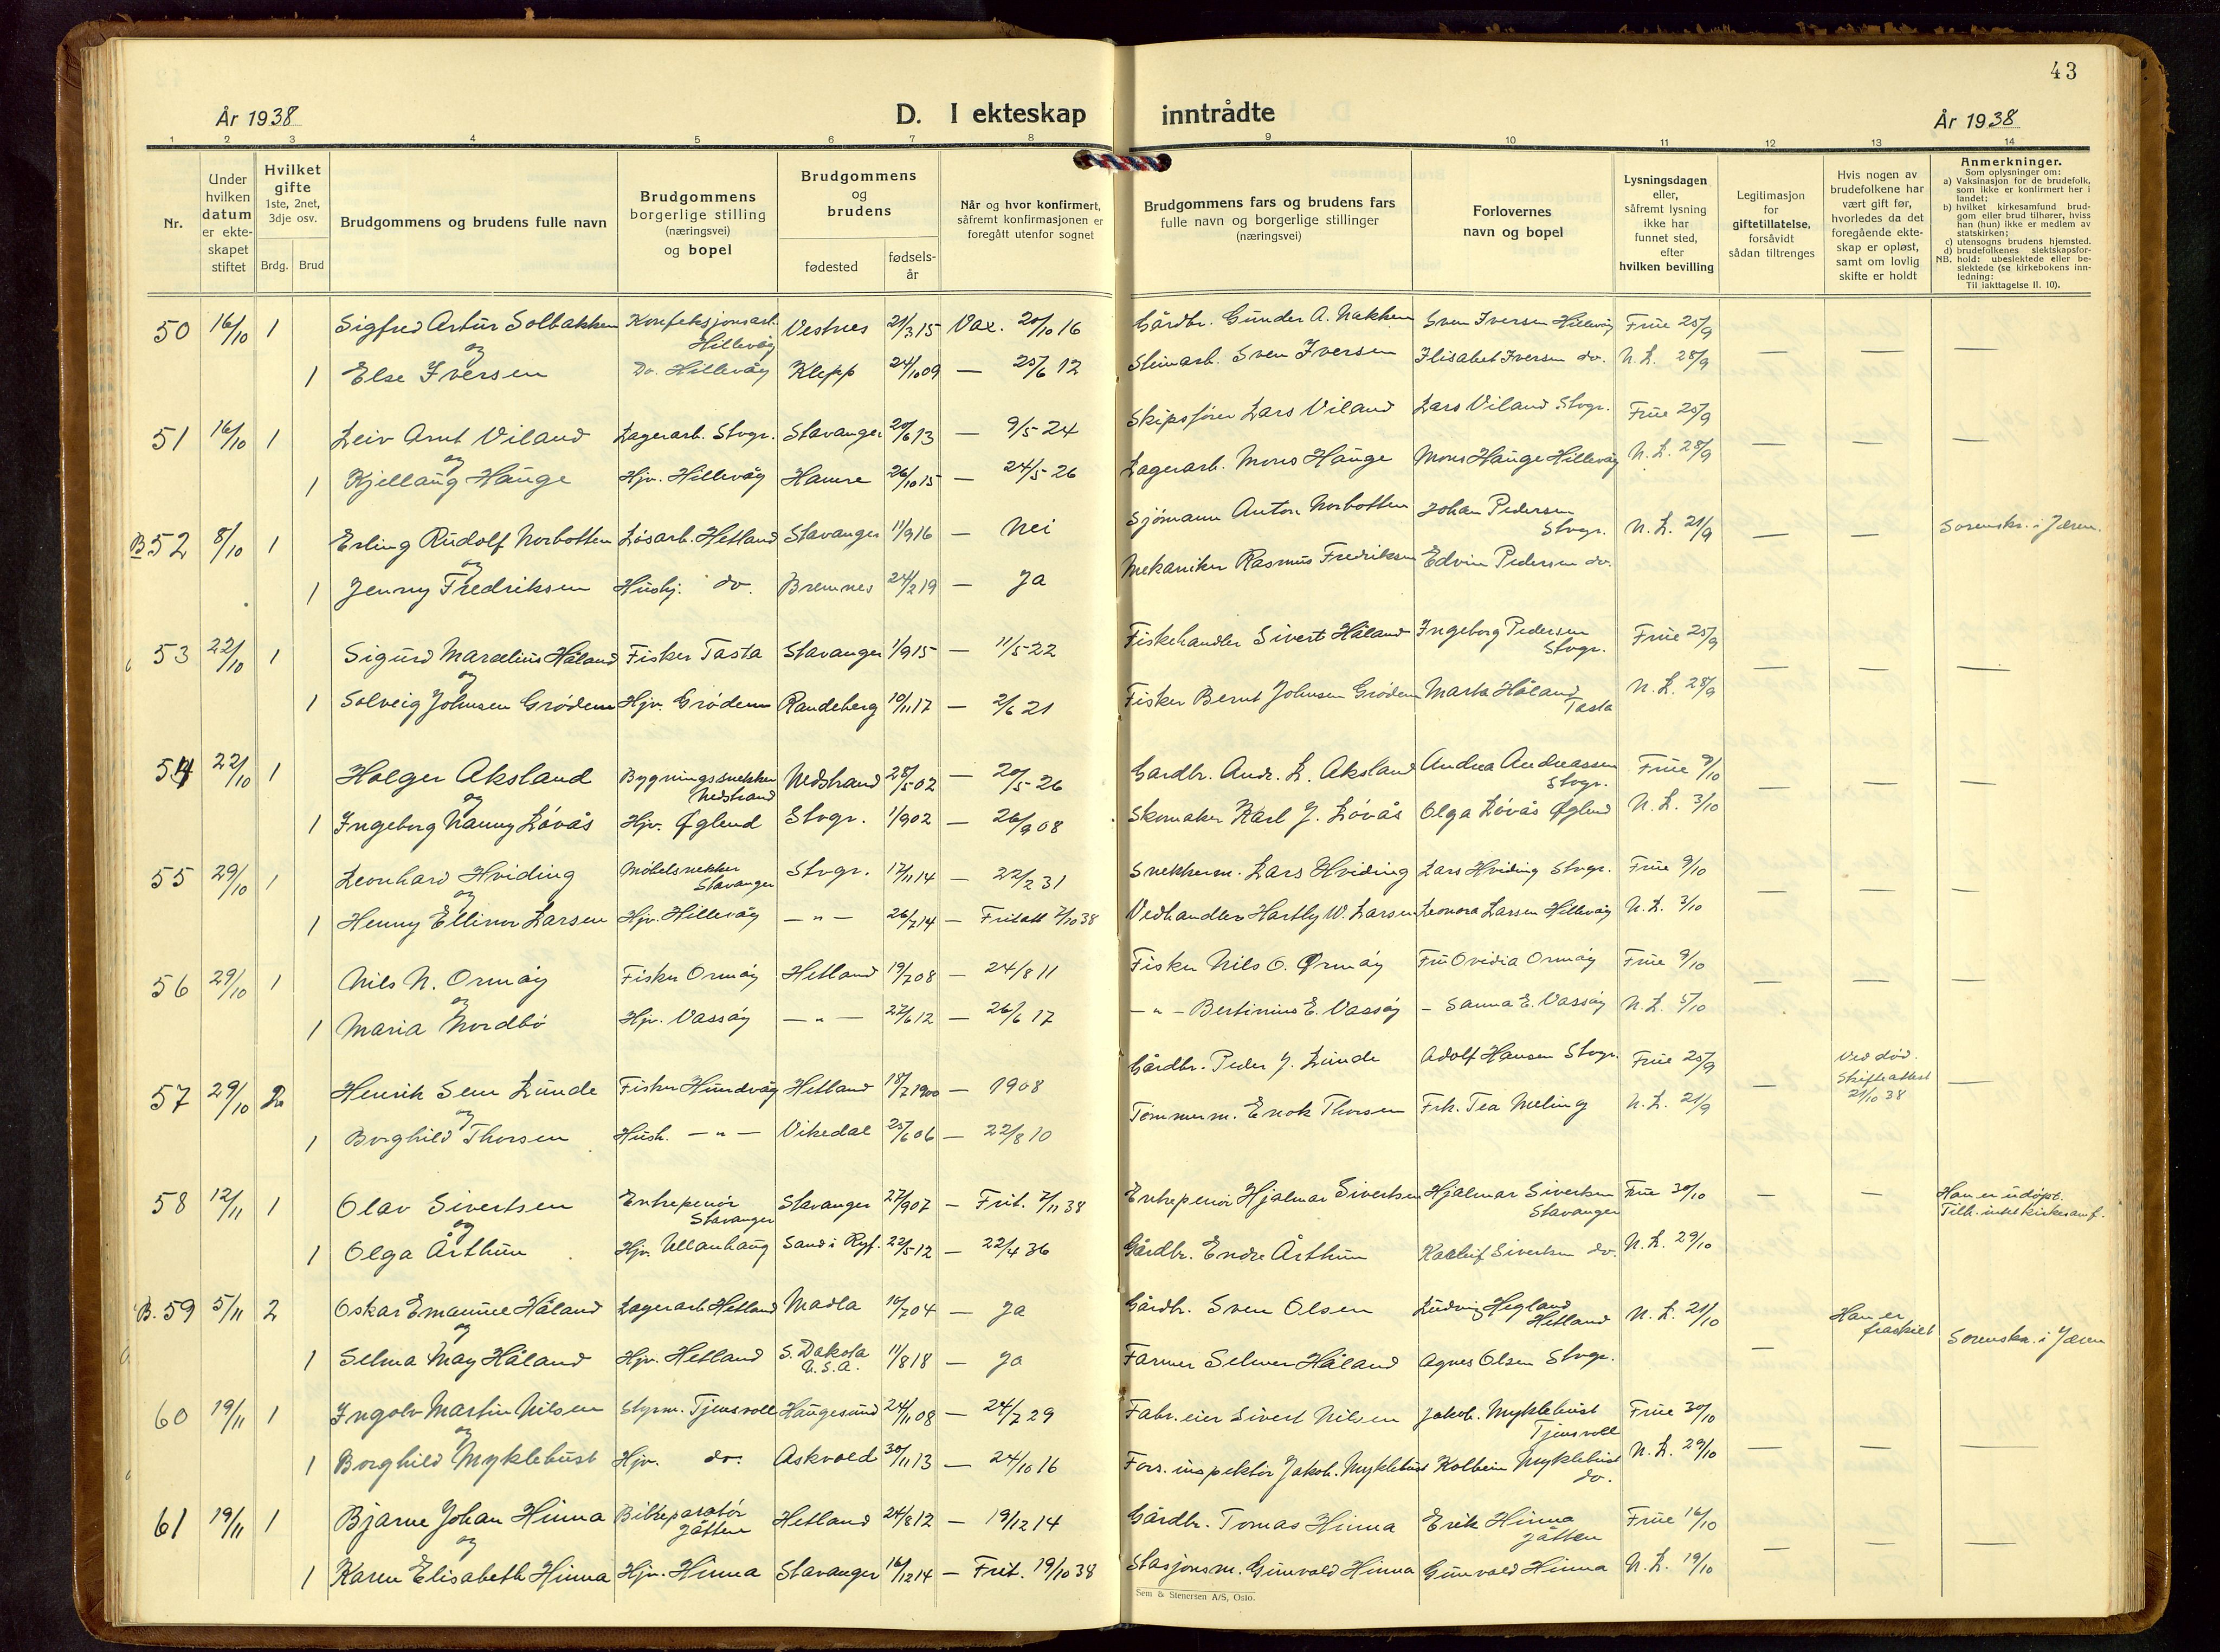 43
År 1938
D. I ekteskap inntrådte
År 1938
1 2 3 4 5 6 7 8 9 10 11 12 13 14
Nr.
Under hvilken datum er ekteskapet stiftet
Hvilket gifte 1ste, 2net, 3dje osv.
Brdg. Brud
Brudgommens og brudens fulle navn
Brudgommens borgerlige stilling (næringsvei) og bopel
Brudgommens og brudens
fødested
fødsels-år
Når og hvor konfirmert, såfremt konfirmasjonen er foregått utenfor sognet
Brudgommens fars og brudens fars fulle navn og borgerlige stillinger (næringsvei)
Forlovernes navn og bopel
Lysningsdagen eller, såfremt lysning ikke har funnet sted, efter hvilken bevilling
Legitimasjon for giftetillatelse, forsåvidt sådan tiltrenges
Hvis nogen av brudefolkene har vært gift før, hvorledes da det foregående ekteskap er opløst, samt om lovlig skifte er holdt
Anmerkninger.
Som oplysninger om:
a) Vaksinasjon for de brudefolk, som ikke er konfirmert her i landet;
b) hvilket kirkesamfund brudgom eller brud tilhører, hviss han (hun) ikke er medlem av statskirken;
c) utensogns brudens hjemsted.
d) brudefolkenes slektskapsforhold: ubeslektede eller beslektede (se kirkebokens innledning:
NB.
Til iakttagelse II. 10).
50 16/10 1 Sigfred Artur Solbakken Konfeksjonsarb. Hillevåg Vestnes 21/3 15 Vax. 20/10 16 Gårdbr. Gunder A. Nakken Sven Iversen Hillevåg Frue 25/9 — — —
og
1 Else Iversen Do. Hillevåg Klepp 24/10 09 — 25/6 12 Steinarb. Sven Iversen Elisabet Iversen do. N.L. 28/9
51 16/10 1 Leiv Arnt Viland Lagerarb. Stvgr. Stavanger 20/6 13 — 9/5 24 Skipsfører Lars Viland Lars Viland Stvgr. Frue 25/9 — — —
og
1 Kjellaug Hauge Hjv. Hillevåg Hamre 26/10 15 — 24/5 26 Lagerarb. Mons Hauge Mons Hauge Hillevåg N.L. 28/9
B 52 8/10 1 Erling Rudolf Norbotten Løsarb. Hetland Stavanger 11/9 16 — Nei Sjømann Anton Norbotten Johan Pedersen Stvgr. N.L. 21/9 — — Sorenskr. i Jæren.
og
1 Jenny Fredriksen Hushj. do. Bremnes 24/2 19 — Ja Mekaniker Rasmus Fredriksen Edvin Pedersen do.
53 22/10 1 Sigurd Marcelius Håland Fisker Tasta Stavanger 1/9 15 — 11/5 22 Fiskehandler Sivert Håland Ingeborg Pedersen Stvgr. Frue 25/9 — — —
og
1 Solveig Johnsen Grødem Hjv. Grødem Randeberg 10/11 17 — 2/6 21 Fisker Bernt Johnsen Grødem Marta Håland Tasta N.L. 28/9
54 22/10 1 Holger Aksland Bygningssnekker Nedstrand Nedstrand 28/5 02 — 20/5 26 Gardbr. Andr. L. Aksland Andrea Andreassen Stvgr. Frue 9/10 — — —
og
1 Ingeborg Nanny Løvås Hjv. Øglend Stvgr. 1/9 02 — 26/9 08 Skomaker Karl J. Løvås Olga Løvås Øglend N.L. 3/10
55 29/10 1 Leonhard Hviding Møbelsnekker Stavanger Stvgr. 17/11 14 — 22/2 31 Snekkerm. Lars Hviding Lars Hviding Stvgr. Frue 9/10 — — —
og
1 Henny Ellinor Larsen Hjv. Hillevåg — " — 26/7 14 — Fritatt 7/10 38 Vedhandler Hartly W. Larsen Leonora Larsen Hillevåg N.L. 3/10
56 29/10 1 Nils N. Ormøy Fisker Ormøy Hetland 19/7 08 — 24/8 11 Fisker Nils O. Ormøy Fru Ovidia Ormøy Frue 9/10 — — —
og
1 Maria Nordbø Hjv. Vassøy — " — 27/6 12 — 26/6 17 — " — Bertinius E. Vassøy — Sanna E. Vassøy N.L. 5/10
57 29/10 2 Henrik Sem Lunde Fisker Hundvåg Hetland 18/7 1900 — 1908 Gårdbr. Peder J. Lunde Adolf Hansen Stvgr. Frue 25/9 — Ved död. Skifteattest 21/10 38 —
og
1 Borghild Thorsen Hush. — " — Vikedal 25/6 06 — 22/8 10 Tømmerm. Enok Thorsen Frk. Tea Meling N.L. 21/9
58 12/11 1 Olav Sivertsen Entrepenør Stavanger Stavanger 27/9 07 — Frit. 7/11 38 Entrepenør Hjalmar Sivertsen Hjalmar Sivertsen Stavanger Frue 30/10 — — Han er udøpt. Tilh. intet kirkesamf.
og
1 Olga Årthun Hjv. Ullanhaug Sand i Ryf. 22/5 12 — 22/4 36 Gårdbr. Endre Årthun Sivertsen do. N.L. 29/10
B. 59 5/11 2 Oskar Emanuel Håland Lagerarb Hetland Madla 10/7 04 — Ja Gårdbr. Sven Olsen Ludvig Hegland Hetland N.L. 21/10 — Han er fraskilt Sorenskr. i Jæren
og
1 Selma May Håland Hjv. Hetland S. Dakota U.S.A. 11/8 18 — Ja Farmer Selmer Håland Agnes Olsen Stvgr.
60 19/11 1 Ingolv Martin Nilsen Styrm. Tjensvoll Haugesund 24/11 08 — 24/7 29 Fabr.eier Sivert Nilsen Jakob. Myklebust Tjensvoll Frue 30/10 — — —
og
1 Borghild Myklebust Hjv. do. Askvold 30/11 13 — 24/10 16 Fors. inspektør Jakob. Myklebust Kolbein Myklebust do. N.L. 29/10
61 19/11 1 Bjarne Johan Hinna Bilreparatør Jåtten Hetland 24/8 12 — 19/12 14 Gårdbr. Tomas Hinna Erik Hinna Jåtten Frue 16/10 — — —
og
1 Karen Elisabeth Hinna Hjv. Hinna Stavanger 16/12 14 — Frit. 19/10 38 Stasjonsm. Gunvald Hinna Gunvald Hinna N.L. 19/10
Sem & Stenersen A/S, Oslo.